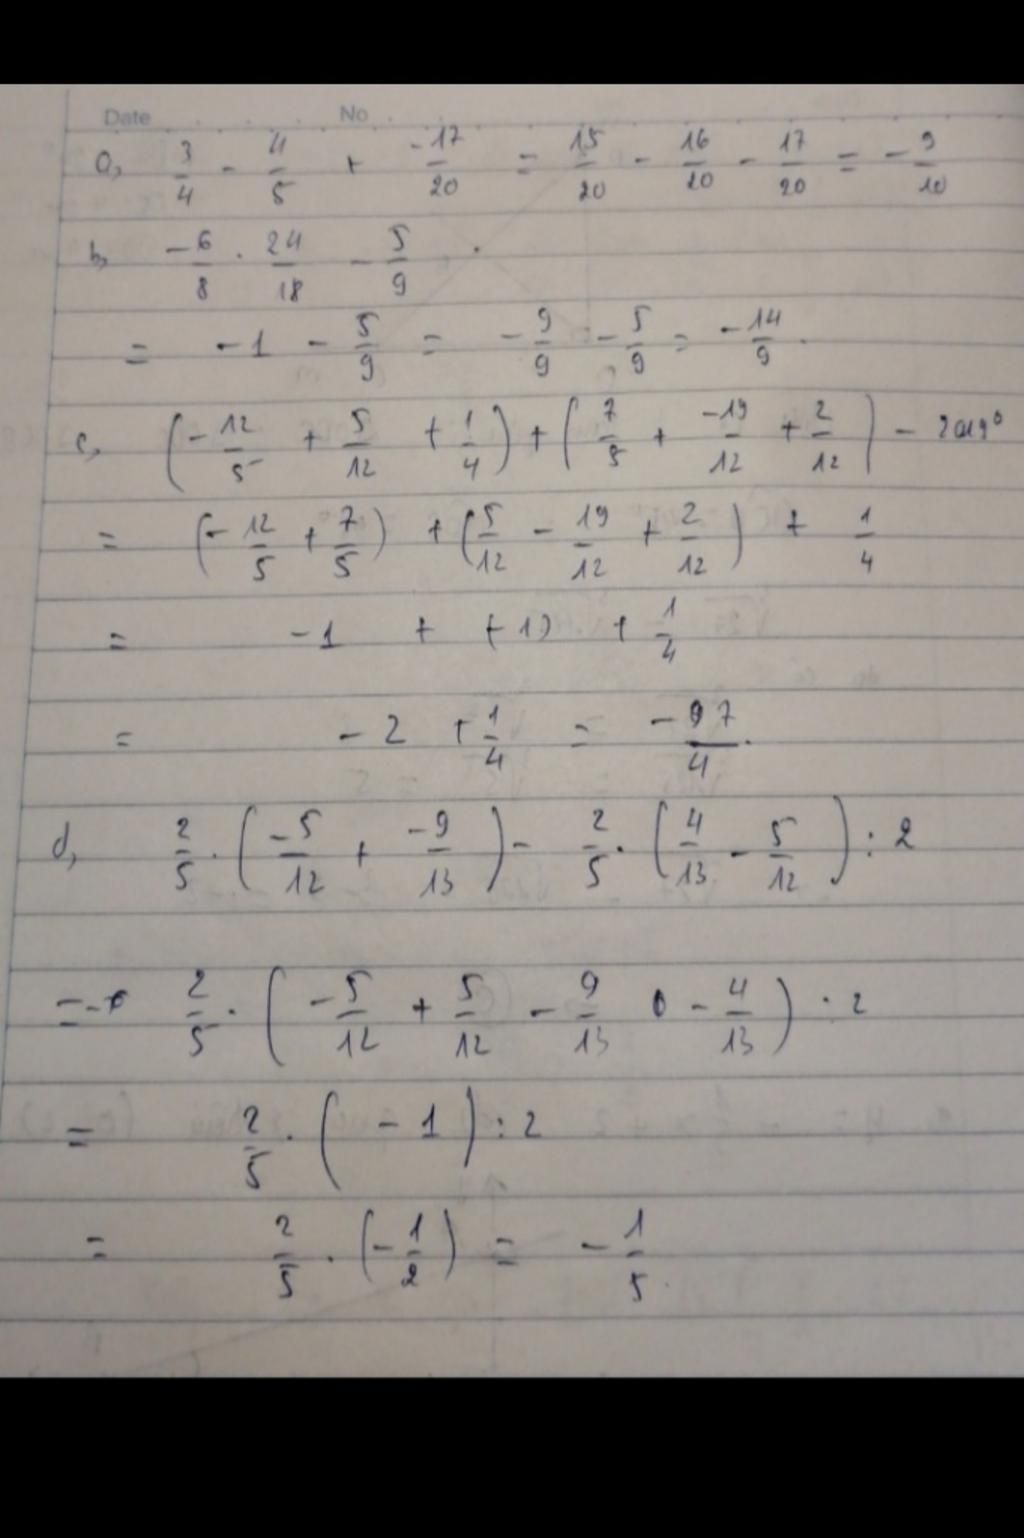 Date No
a, 3/4 - 4/5 + -17/20 = 15/20 - 16/20 - 17/20 = -9/10
b, -6/8 . 24/18 - 5/9
= -1 - 5/9 = -9/9 - 5/9 = -14/9.
c, (-12/5 + 5/12 + 1/4) + (7/5 + -19/12 + 2/12) - 2019⁰
= (-12/5 + 7/5) + (5/12 - 19/12 + 2/12) + 1/4
= -1 + (-1) + 1/4
= -2 + 1/4 = -97/4.
d, 2/5 . (-5/12 + -9/13) - 2/5 . (4/13 - 5/12) : 2
= 2/5 . (-5/12 + 5/12 - 9/13 - 4/13) : 2
= 2/5 . (-1) : 2
= 2/5 . (-1/2) = -1/5.